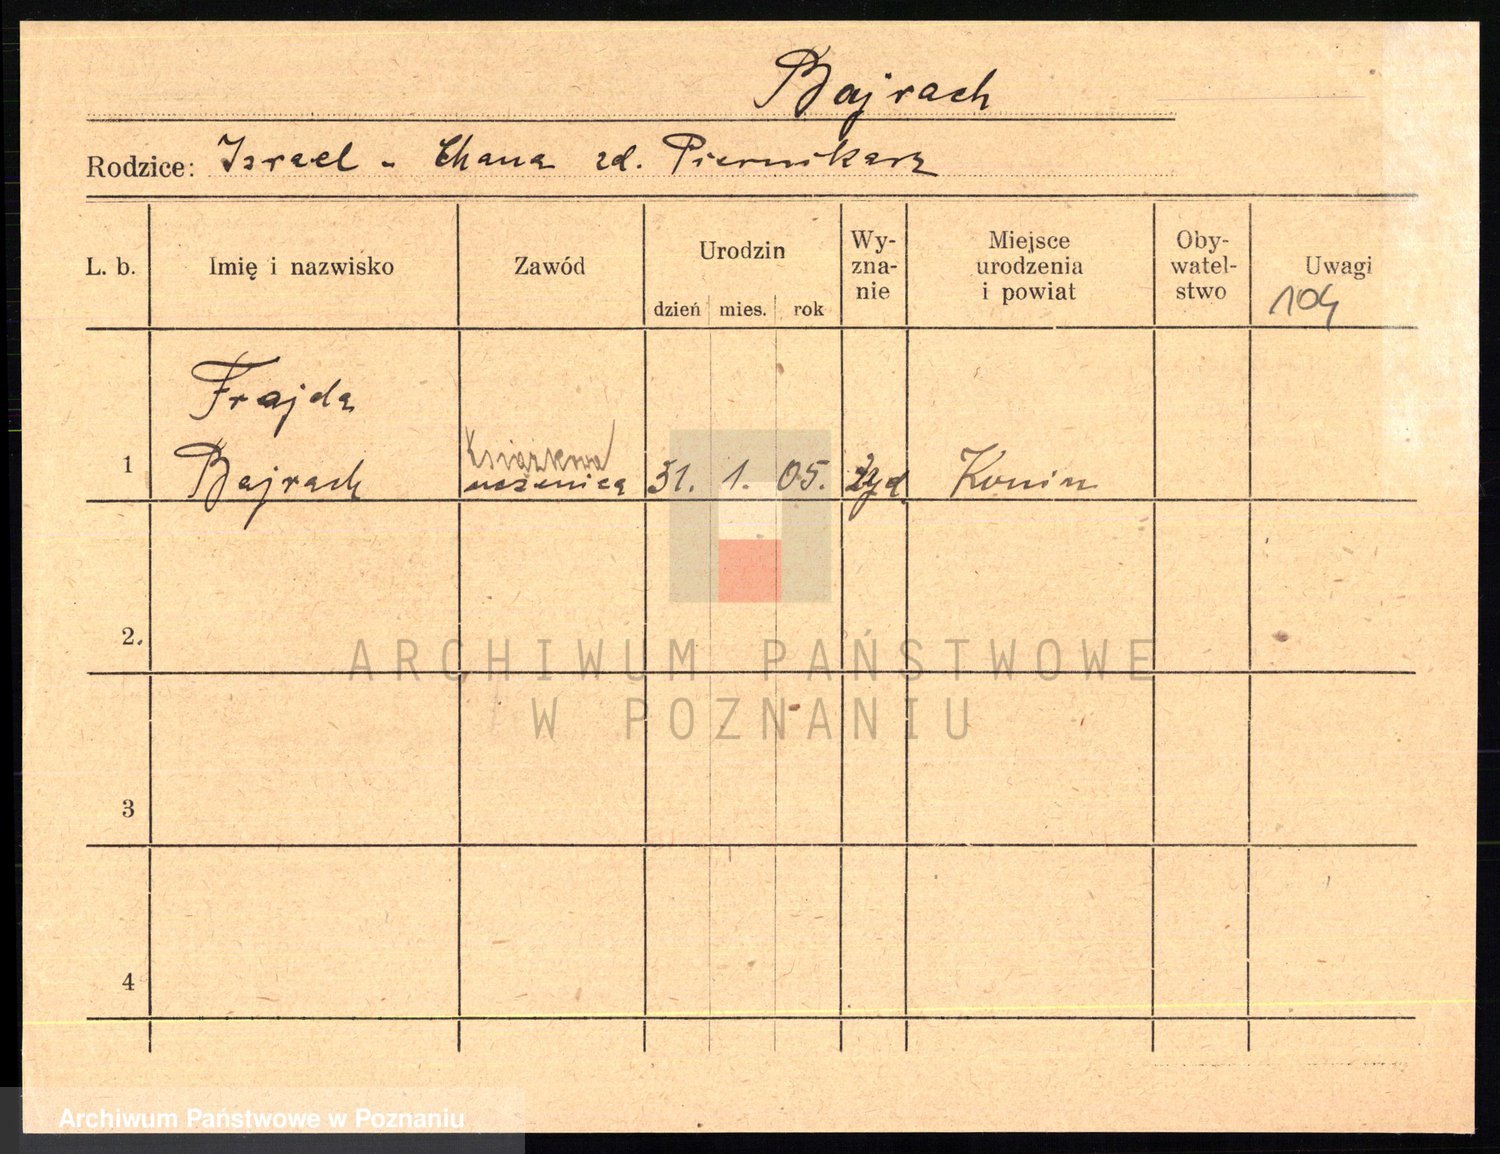 Bajrach
Rodzice: Izrael - Chana zd. Piernikarz
L. b.
Imię i nazwisko
Zawód
Urodzin
dzień mies. rok
Wy-
zna-
nie
Miejsce
urodzenia
i powiat
Oby-
watel-
stwo
Uwagi
104
Frajda
1 Bajrach
Książkowa
uczenica
31. 1. 05.
Konin
2.
3
4
ARCHIWUM PAŃSTWOWE
W POZNANIU
Archiwum Państwowe w Poznaniu